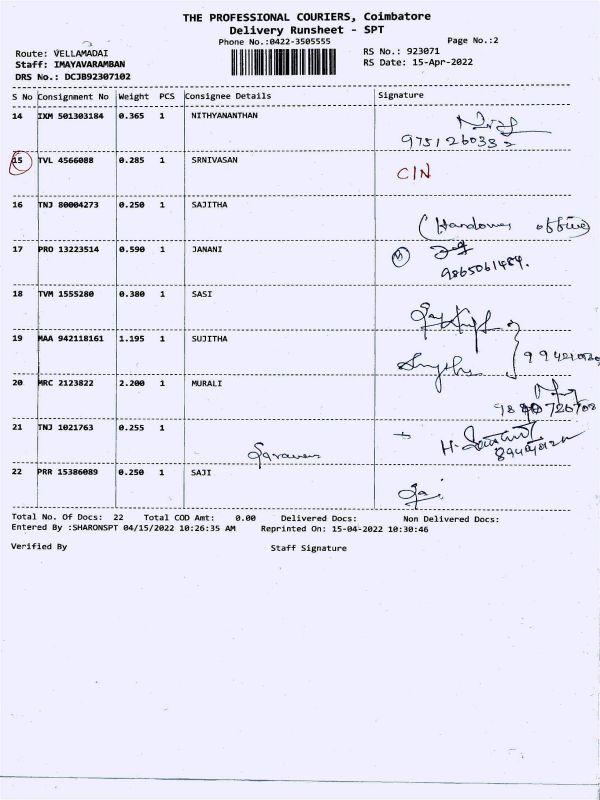 THE PROFESSIONAL COURIERS, Coimbatore
Delivery Runsheet - SPT
Phone No.:0422-3505555 Page No.:2
Route: VELLAMADAI RS No.: 923071
Staff: IMAYAVARAMBAN RS Date: 15-Apr-2022
DRS No.: DCJB92307102
S No Consignment No Weight PCS Consignee Details Signature
14 IXM 501303184 0.365 1 NITHYANANTHAN
9751260332
15 TVL 4566088 0.285 1 SRNIVASAN CIN
16 TNJ 80004273 0.250 1 SAJITHA
(Handover office)
17 PRO 13223514 0.590 1 JANANI
9865061484.
18 TVM 1555280 0.380 1 SASI
19 MAA 942118161 1.195 1 SUJITHA
20 MRC 2123822 2.200 1 MURALI
21 TNJ 1021763 0.255 1
Saravan
22 PRR 15386089 0.250 1 SAJI
Total No. Of Docs: 22 Total COD Amt: 0.00 Delivered Docs: Non Delivered Docs:
Entered By :SHARONSPT 04/15/2022 10:26:35 AM Reprinted On: 15-04-2022 10:30:46
Verified By Staff Signature